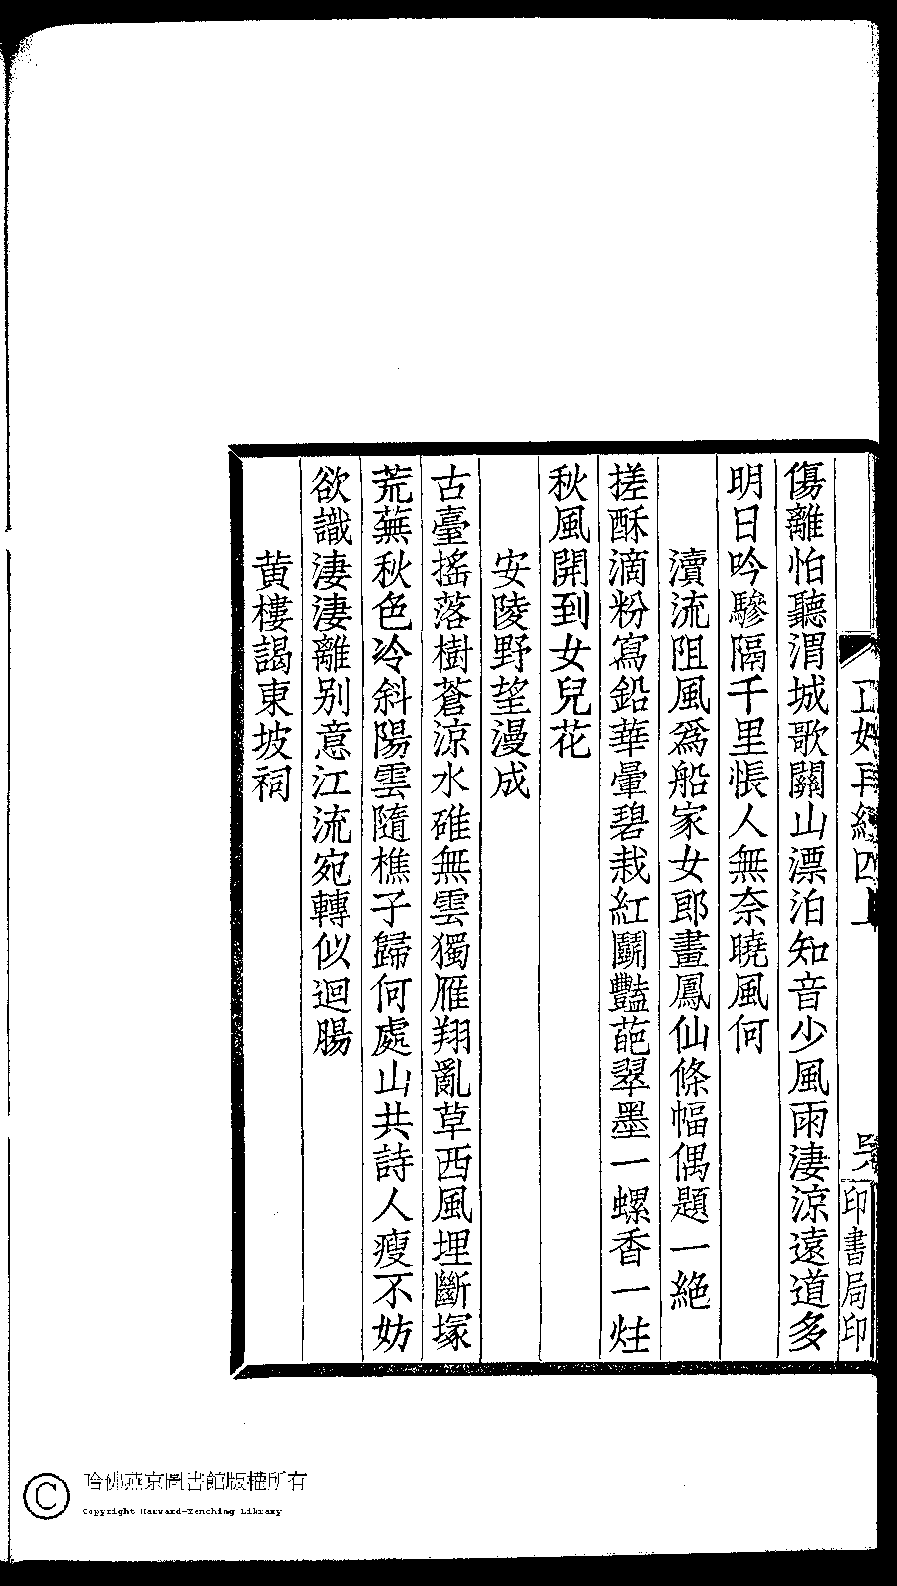 傷離怕聽渭城歌關山漂泊知音少風雨淒涼遠道多
明日吟驂隔千里悵人無奈曉風何
瀆流阻風爲船家女郎畫鳳仙條幅偶題一絕
搓酥滴粉寫鉛華暈碧栽紅鬬豔葩翠墨一螺香一炷
秋風開到女兒花
安陵野望漫成
古臺搖落樹蒼涼水碓無雲獨雁翔亂草西風埋斷塚
荒蕪秋色冷斜陽雲隨樵子歸何處山共詩人瘦不妨
欲識淒淒離別意江流宛轉似迴腸
黃樓謁東坡祠
四上
印書局印
哈佛燕京圖書館版權所有
Copyright Harvard-Yenching Library